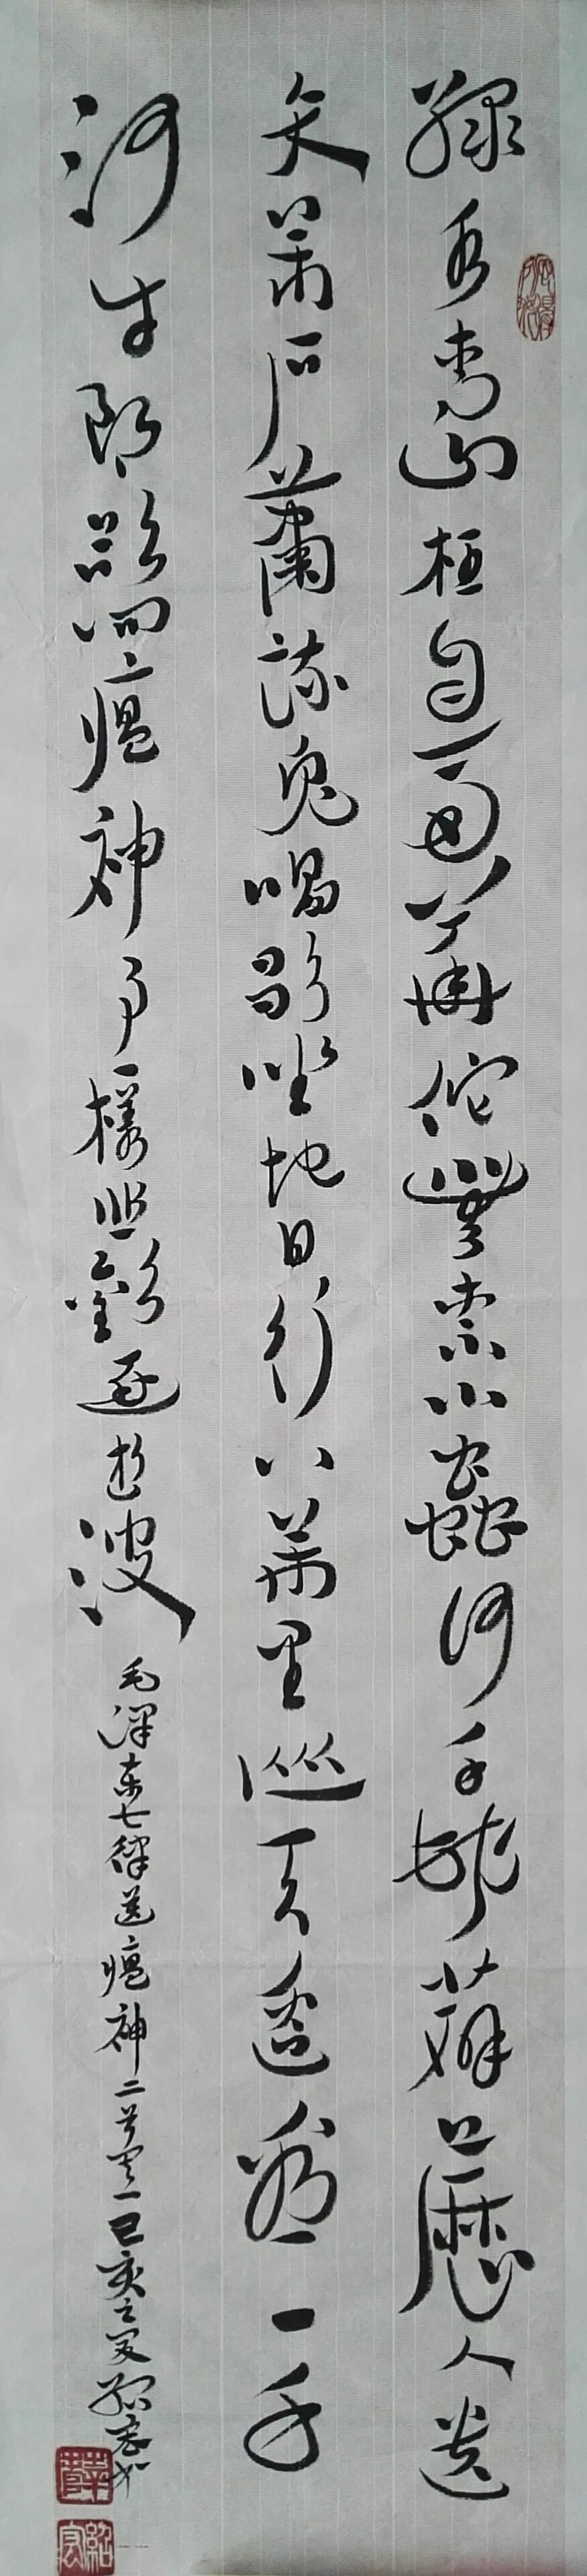 綠水青山枉自多華佗無奈小蟲何千村薜荔人遺
矢萬戶蕭疏鬼唱歌坐地日行八萬里巡天遙看一千
河牛郎欲問瘟神事一樣悲歡逐逝波
毛澤東七律送瘟神二首其一己亥之夏